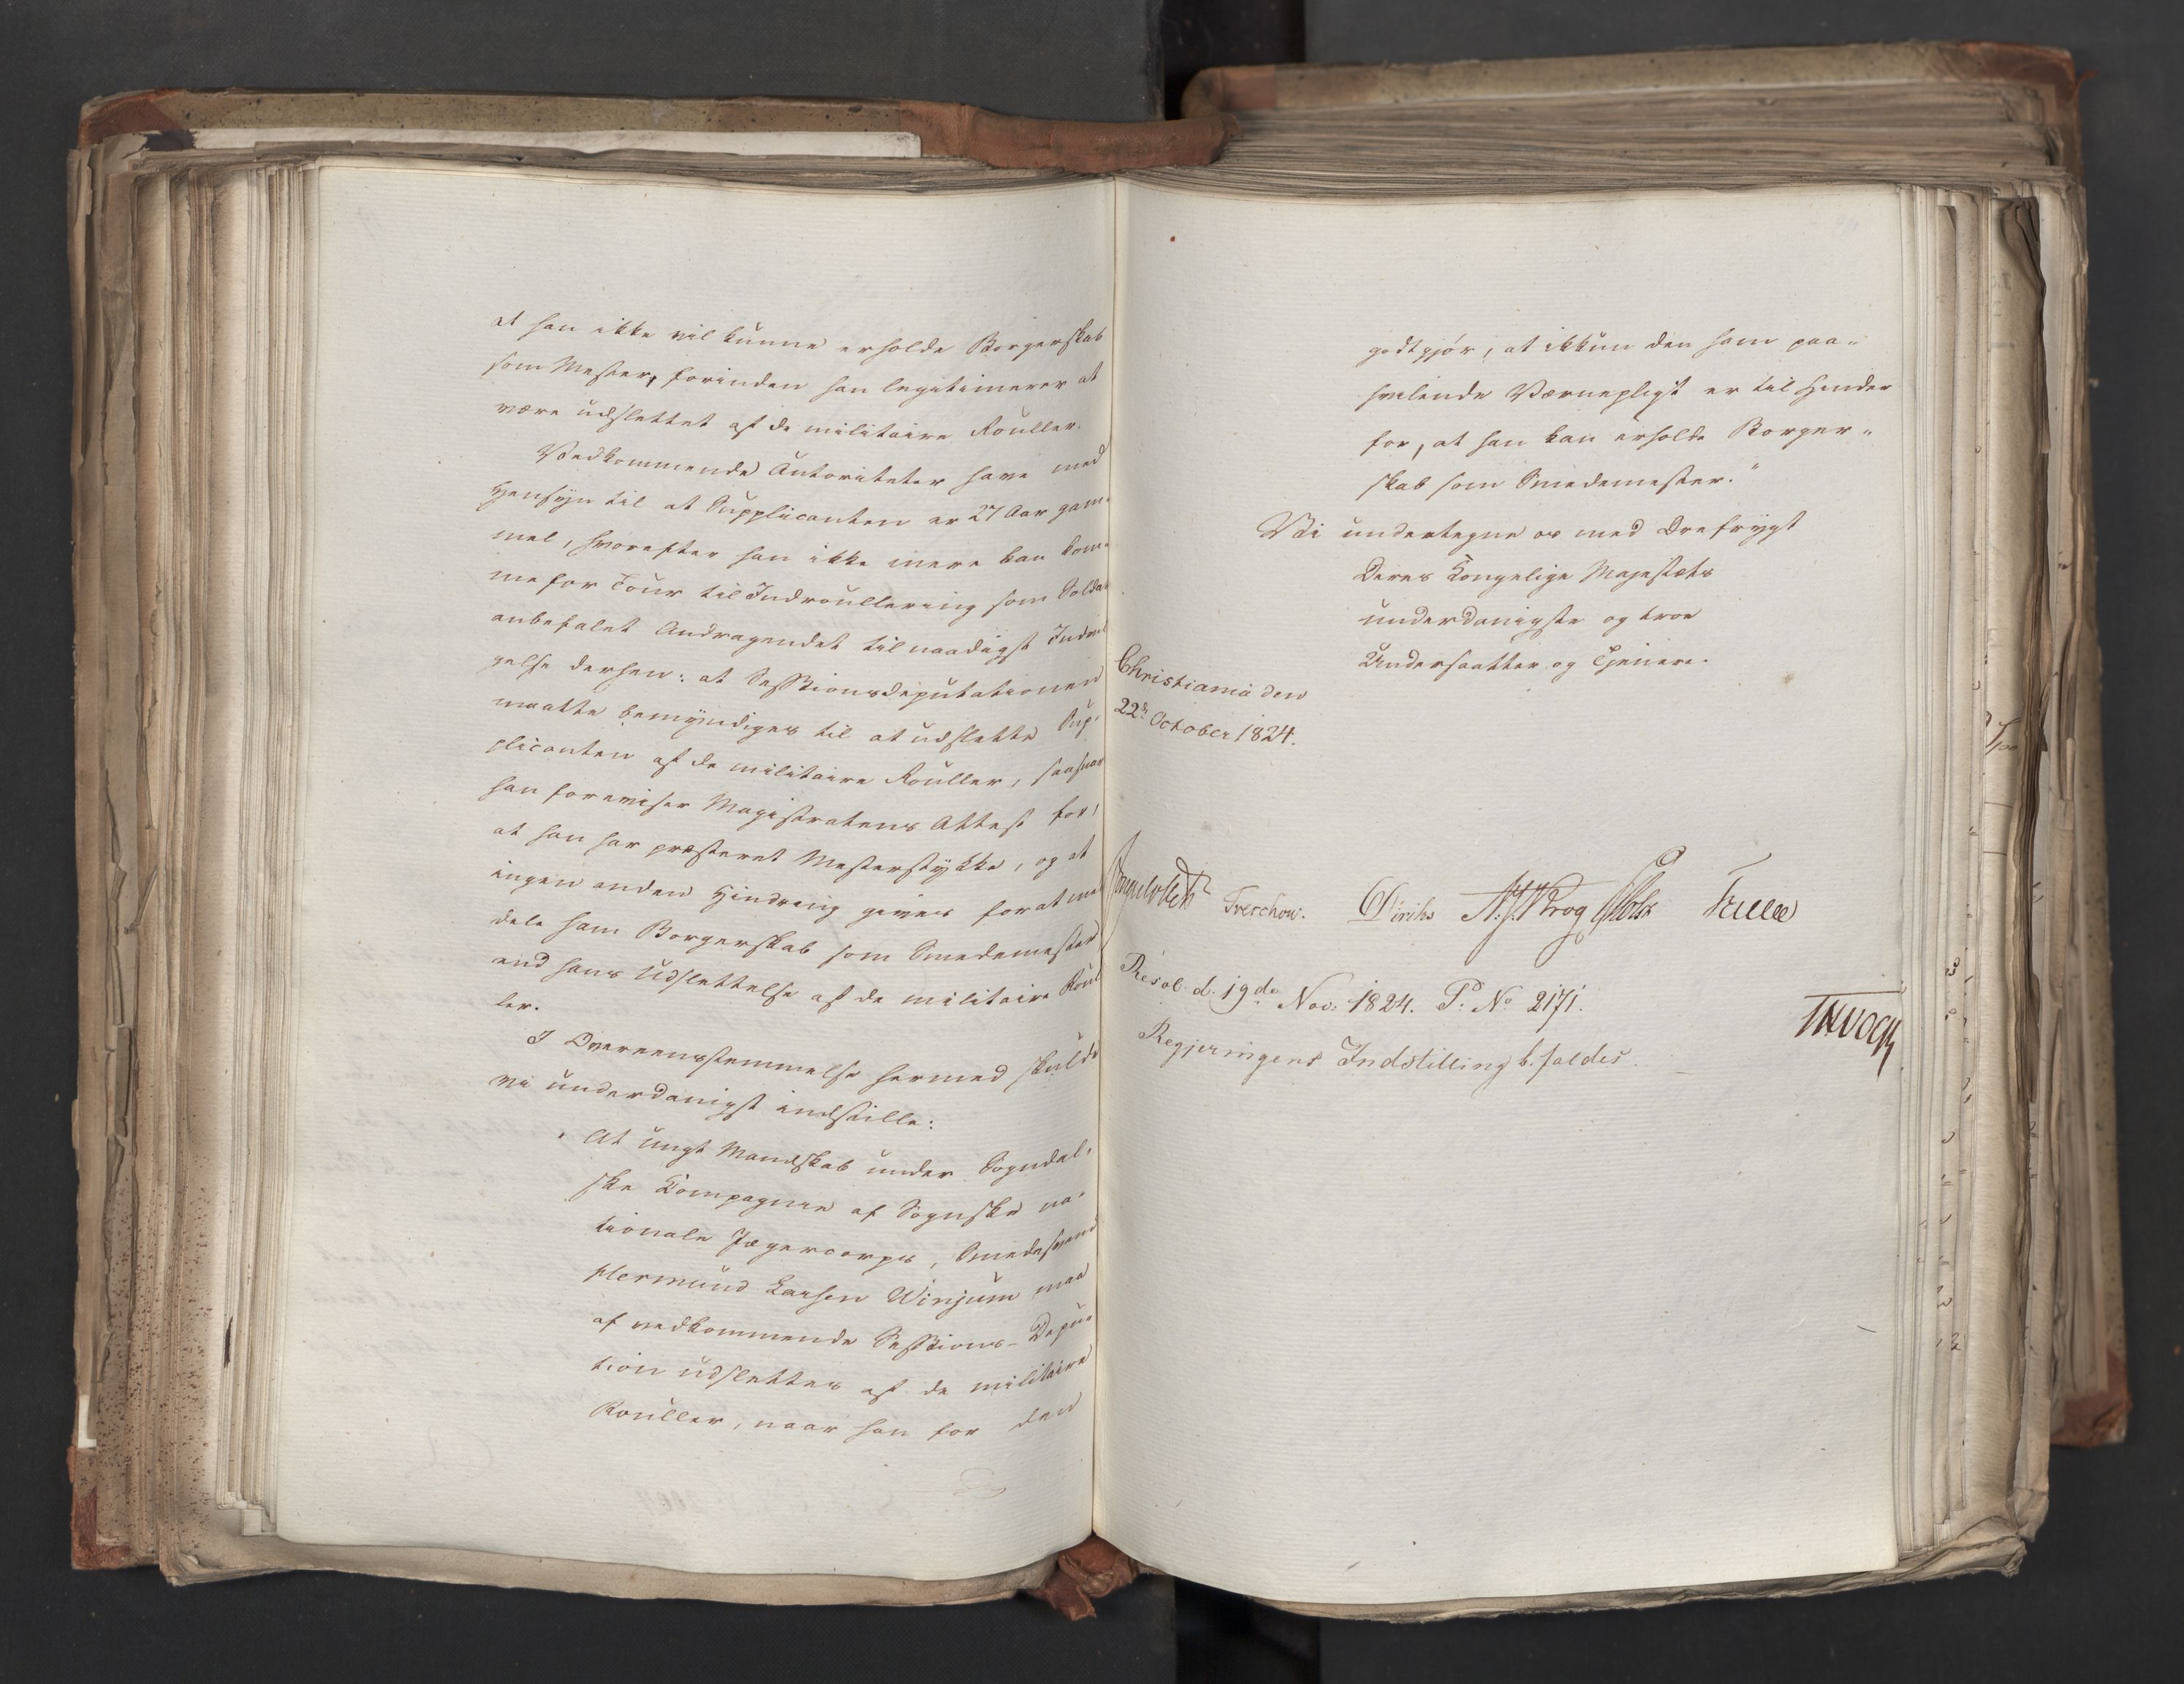 at han ikke vil kunne erholde Borgerskab
som Mester, forinden han legitimerer at
være udslettet af de militaire Rouller.
Vedkommende Autoriteter have med
Hensyn til at Supplicanten er 27 Aar gam-
mel, hvorefter han ikke mere kan kom-
me for Tour til Indroullering som Soldat
anbefalet Andragendet til naadigst Indvil
gelse derhen: at Sessionsdeputationen
maatte bemyndiges til at udslette Sup-
plicanten af de militaire Rouller, saasnart
han foreviser Magistratens Attest for,
at han har præsteret Mesterstykke, og at
ingen anden Hindring gives for at med
dele ham Borgerskab som Smedemester
end hans Udslettelse af de militaire Roul
ler.
I Overeensstemmelse hermed skulde
vi underdanigst indstille:
"At ungt Mandskab under Sogndal-
ske Compagnie af Sognske na-
tionale Jægercorps, Smedesvend
Hermund Larsen Winjum maa
af vedkommende Sessions-Depu-
tion udslettes af de militaire
Rouller, naar han for den
godtgjör, at ikkun den ham paa-
hvilende Værnepligt er til Hinder
for, at han kan erholde Borger-
skab som Smedemester."
Vi undertegne os med Ærefrygt
Deres Kongelige Majestæts
underdanigste og troe
Undersaatter og Tjenere.
Christiania den
22de October 1824.
Treschow. Diriks A. J. Krog Fasting
Resol. d. 19de Nov. 1824. P. No 2171.
Regjeringens Indstilling bifaldes.
JHVogt